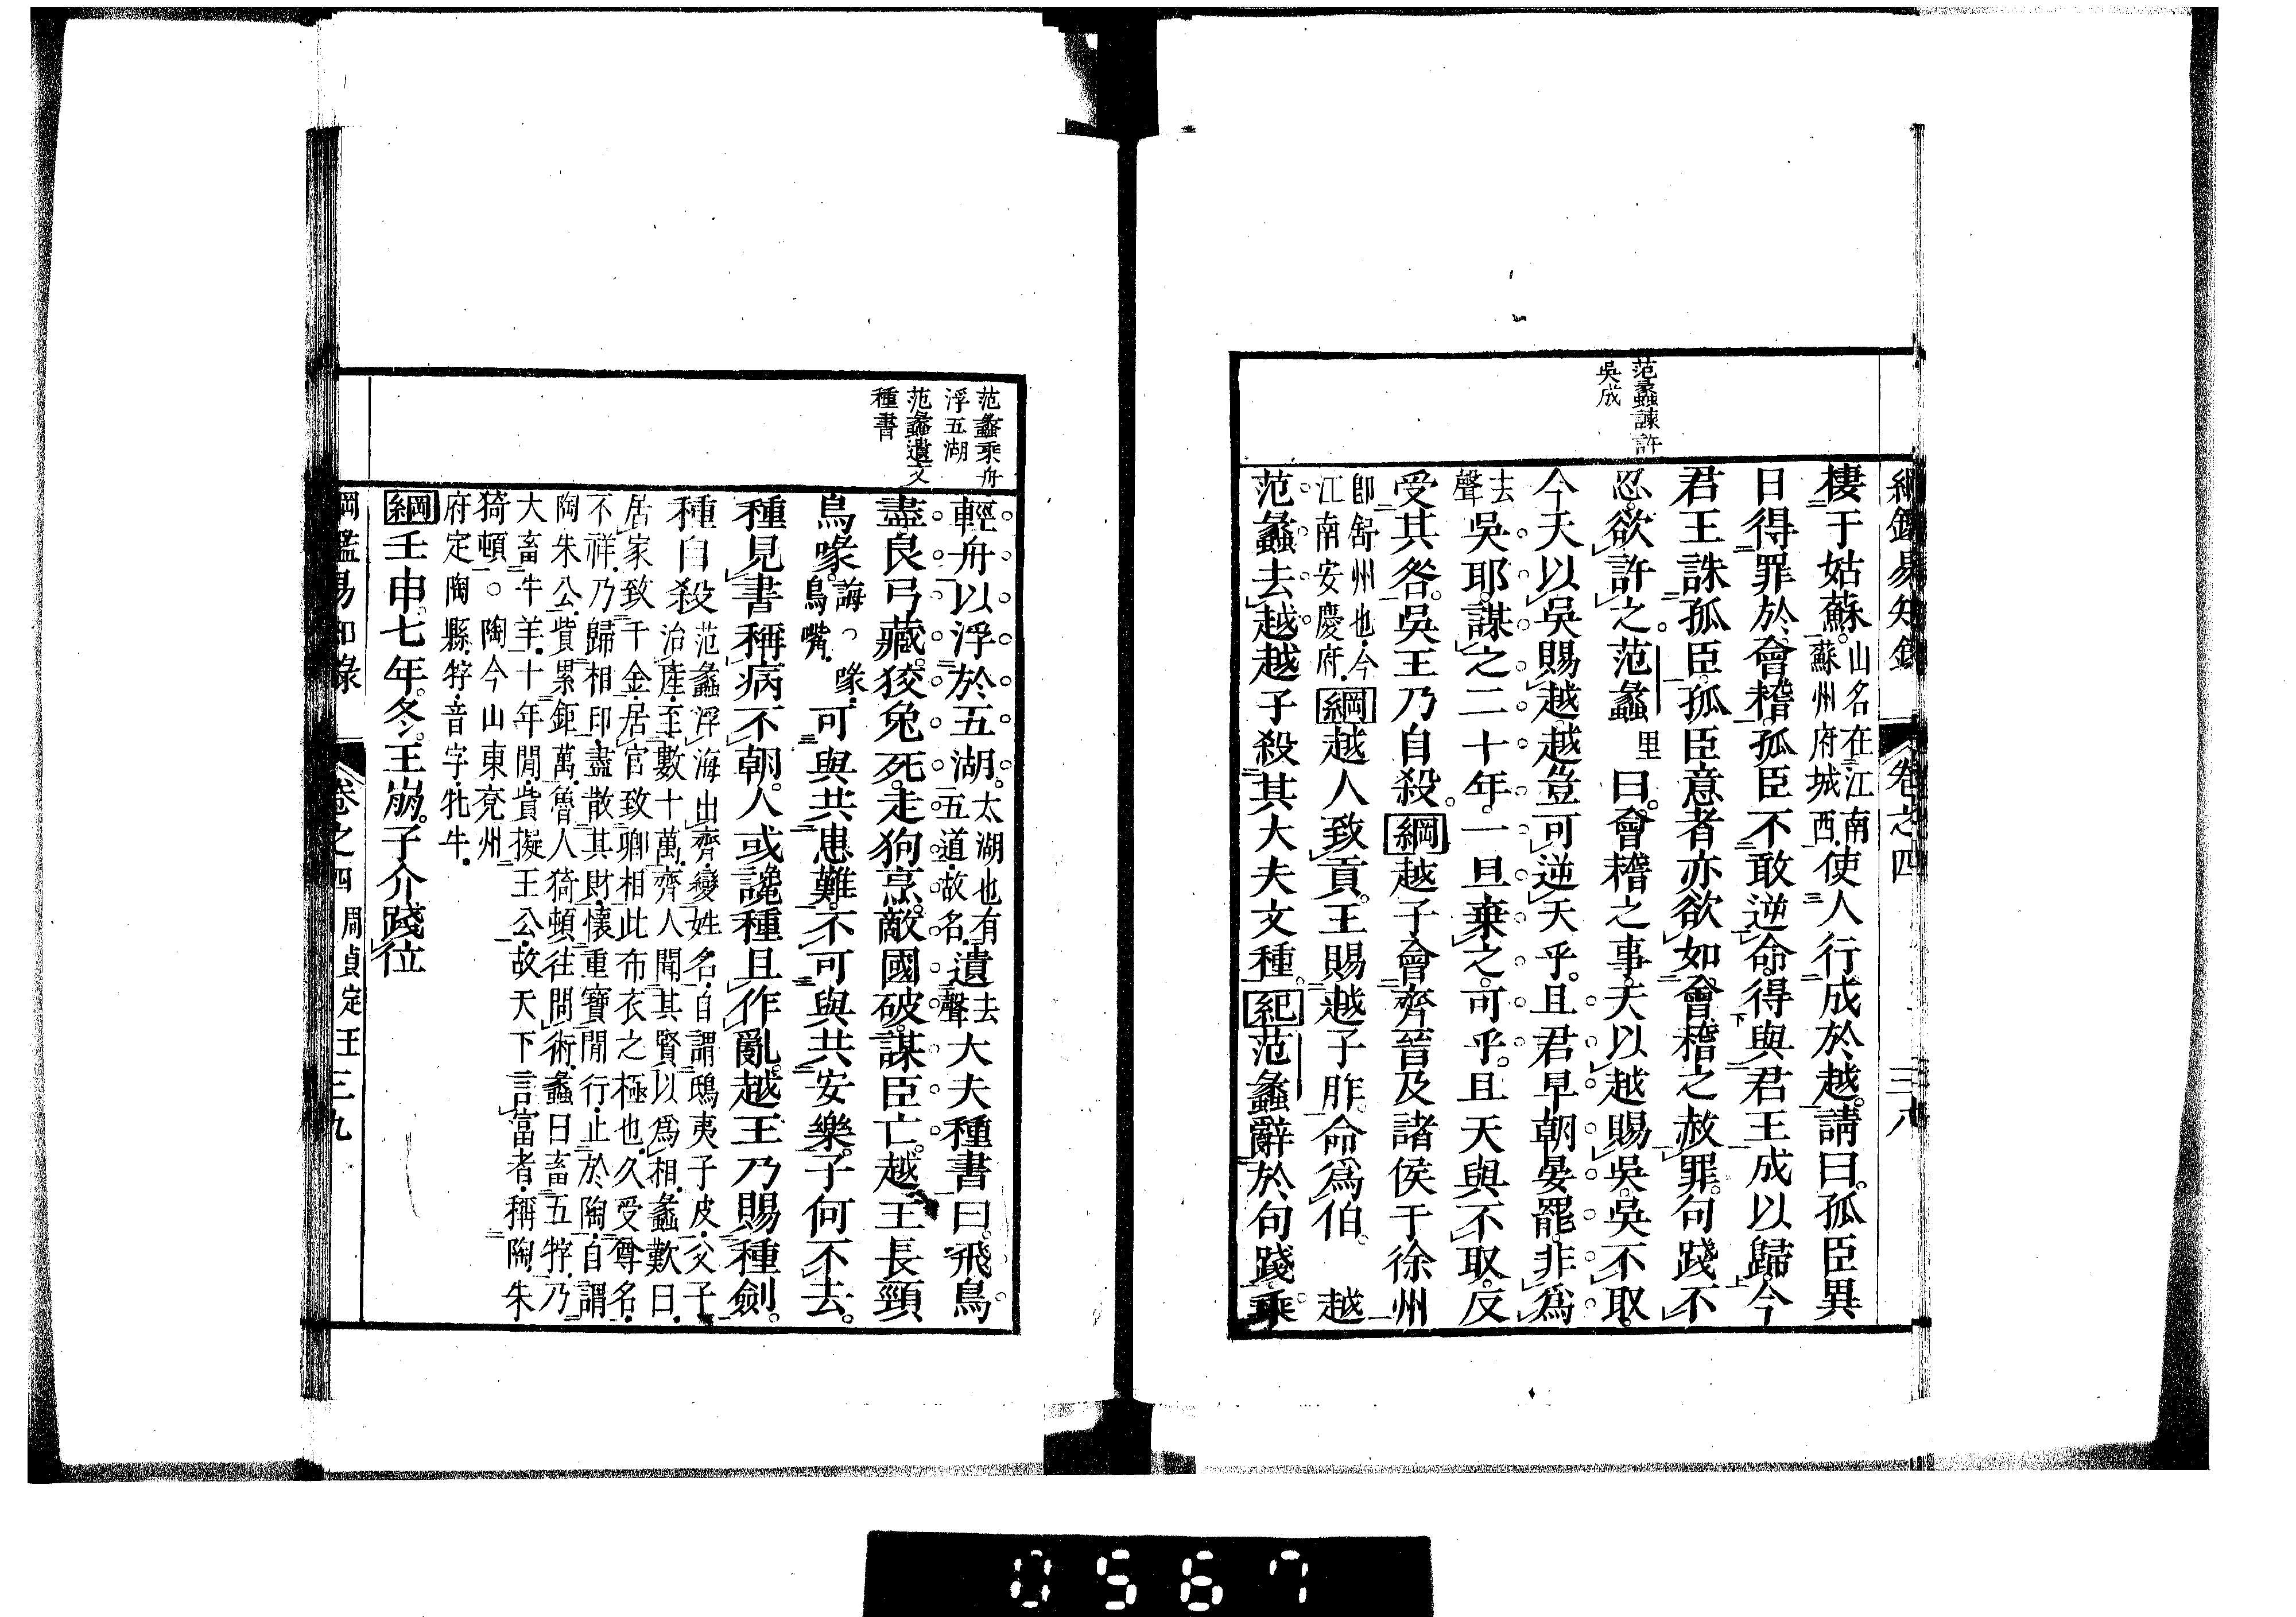 綱鑑易知錄 卷之四 三八
范蠡諫許
吳成
棲于姑蘇。山名在江南蘇州府城西。使人行成於越。請曰。孤臣異
日得罪於會稽。孤臣不敢逆命。得與君王成以歸。今
君王誅孤臣。孤臣意者亦欲如會稽之赦罪。句踐不
忍。欲許之。范蠡里曰。會稽之事。天以越賜吳。吳不取。
今天以吳賜越。越豈可逆天乎。且君早朝晏罷。非爲
去聲吳耶。謀之二十年。一旦棄之。可乎。且天與不取。反
受其咎。吳王乃自殺。綱越子會齊晉及諸侯于徐州
卽舒州也。今江南安慶府。綱越人致貢。王賜越子胙。命爲伯。 越
范蠡去越。越子殺其大夫文種。紀范蠡辭於句踐。乘
范蠡乘舟
浮五湖
范蠡遺文
種書
輕舟以浮於五湖。太湖也有五道。故名。遺去聲大夫種書曰。飛鳥
盡。良弓藏。狡兔死。走狗烹。敵國破。謀臣亡。越王長頸
鳥喙。誨。喙。鳥嘴。可與共患難。不可與共安樂。子何不去。
種見書稱病不朝。人或讒種且作亂。越王乃賜種劍。
種自殺。范蠡浮海出齊。變姓名。自謂鴟夷子皮。父子
治產。至數十萬。齊人聞其賢以爲相。蠡歎曰。
居家致千金。居官致卿相。此布衣之極也。久受尊名。
不祥。乃歸相印。盡散其財。懷重寶閒行。止於陶。自謂
陶朱公。貲累鉅萬。魯人猗頓往問術。蠡曰畜五牸。乃
大畜牛羊。十年閒。貲擬王公。故天下言富者。稱陶朱
猗頓。○陶今山東兗州
府定陶縣。牸。音字。牝牛。
綱壬申。七年。冬。王崩。子介踐位
綱鑑易知錄 卷之四 周貞定王 三九
0567